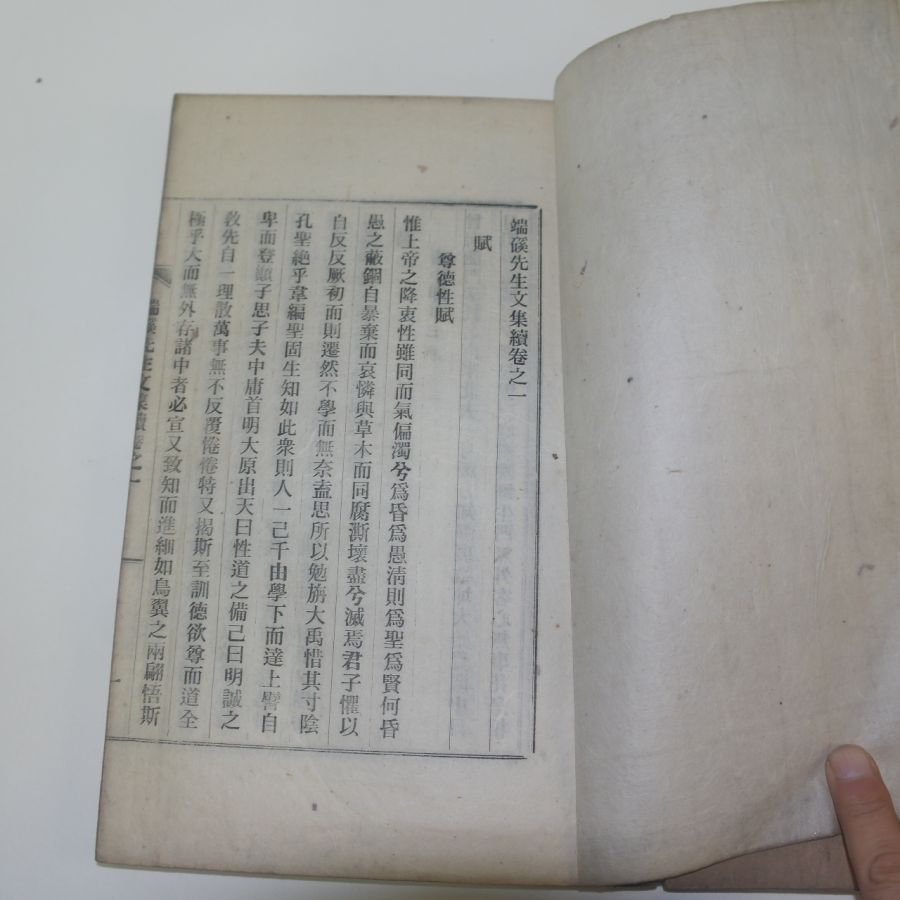 端磎先生文集續卷之一
賦
尊德性賦
惟上帝之降衷性雖同而氣偏濁兮爲昏爲愚淸則爲聖爲賢何昏
愚之蔽錮自暴棄而哀憐與草木而同腐澌壞盡兮滅焉君子懼以
自反反厥初而則遷然不學而無奈盍思所以勉旃大禹惜其寸陰
孔聖絶乎韋編聖固生知如此衆則人一己千由學下而達上譬自
卑而登顚子思子夫中庸首明大原出天曰性道之備己曰明誠之
敎先自一理散萬事無不反覆惓惓特又揭斯至訓德欲尊而道全
極乎大而無外存諸中者必宣又致知而進細如鳥翼之兩翩悟斯
端磎先生文集續卷之一